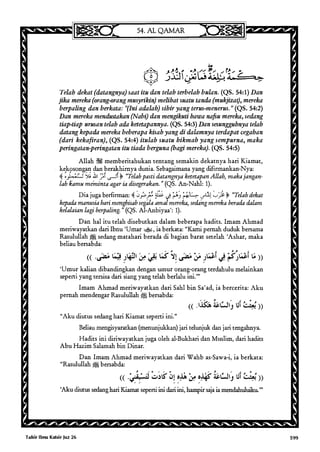 54. AL QAMAR
Telah dekat (datangnya) saat itu dan telah terbelah bulan. (QS. 54:1) Dan
jika mereka (orang-orang musyrikin) melihat suatu tanda (mukjizat), mereka
berpaling dan berkata: "(Ini adalah) sihir yang terus-menerus." (QS. 54:2)
Dan mereka mendustakan (Nabi) dan mengikuti hawa nafsu mereka, sedang
tiap-tiap urusan telah ada ketetapannya. (QS. 54:3) Dan sesungguhnya telah
datang kepada mereka beberapa kisah yang di dalamnya terdapat cegahan
(dari kekafiran), (QS. 54:4) itulah suatu hikmah yang sempurna, maka
peringatan-peringatan itu tiada berguna (bagi mereka). (QS. 54:5)
Allah ﷻ memberitahukan tentang semakin dekatnya hari Kiamat,
kekosongan dan berakhirnya dunia. Sebagaimana yang difirmankan-Nya:
"Telah pasti datangnya ketetapan Allah, maka jangan-
lah kamu meminta agar ia disegerakan." (QS. An-Nahl: 1).
Dia juga berfirman: "Telah dekat
kepada manusia hari menghisab segala amal mereka, sedang mereka berada dalam
kelalaian lagi berpaling." (QS. Al-Anbiyaa': 1).
Dan hal itu telah disebutkan dalam beberapa hadits. Imam Ahmad
meriwayatkan dari Ibnu 'Umar, ia berkata: "Kami pernah duduk bersama
Rasulullah ﷺ sedang matahari berada di bagian barat setelah 'Ashar, maka
beliau bersabda:
(( مَا أَعْمَارُكُمْ فِي أَعْمَارِ مَنْ مَضَى إِلاَّ كَمَا بَقِيَ مِنَ النَّهَارِ فِيمَا مَضَى. ))
'Umur kalian dibandingkan dengan umur orang-orang terdahulu melainkan
seperti yang tersisa dari siang yang telah berlalu ini.'"
Imam Ahmad meriwayatkan dari Sahl bin Sa'ad, ia bercerita: Aku
pernah mendengar Rasulullah ﷺ bersabda:
(( بُعِثْتُ أَنَا وَالسَّاعَةُ هَكَذَا. ))
"Aku diutus sedang hari Kiamat seperti ini."
Beliau mengisyaratkan (menunjukkan) jari telunjuk dan jari tengahnya.
Hadits ini diriwayatkan juga oleh al-Bukhari dan Muslim, dari hadits
Abu Hazim Salamah bin Dinar.
Dan Imam Ahmad meriwayatkan dari Wahb as-Sawa-i, ia berkata:
"Rasulullah ﷺ bersabda:
(( بُعِثْتُ أَنَا وَالسَّاعَةُ كَهَذِهِ مِنْ هَذِهِ إِنْ كَادَتْ لَتَسْبِقُنِي. ))
'Aku diutus sedang hari Kiamat seperti ini dari ini, hampir saja ia mendahuluiku.'"
Tafsir Ibnu Katsir Juz 26
599